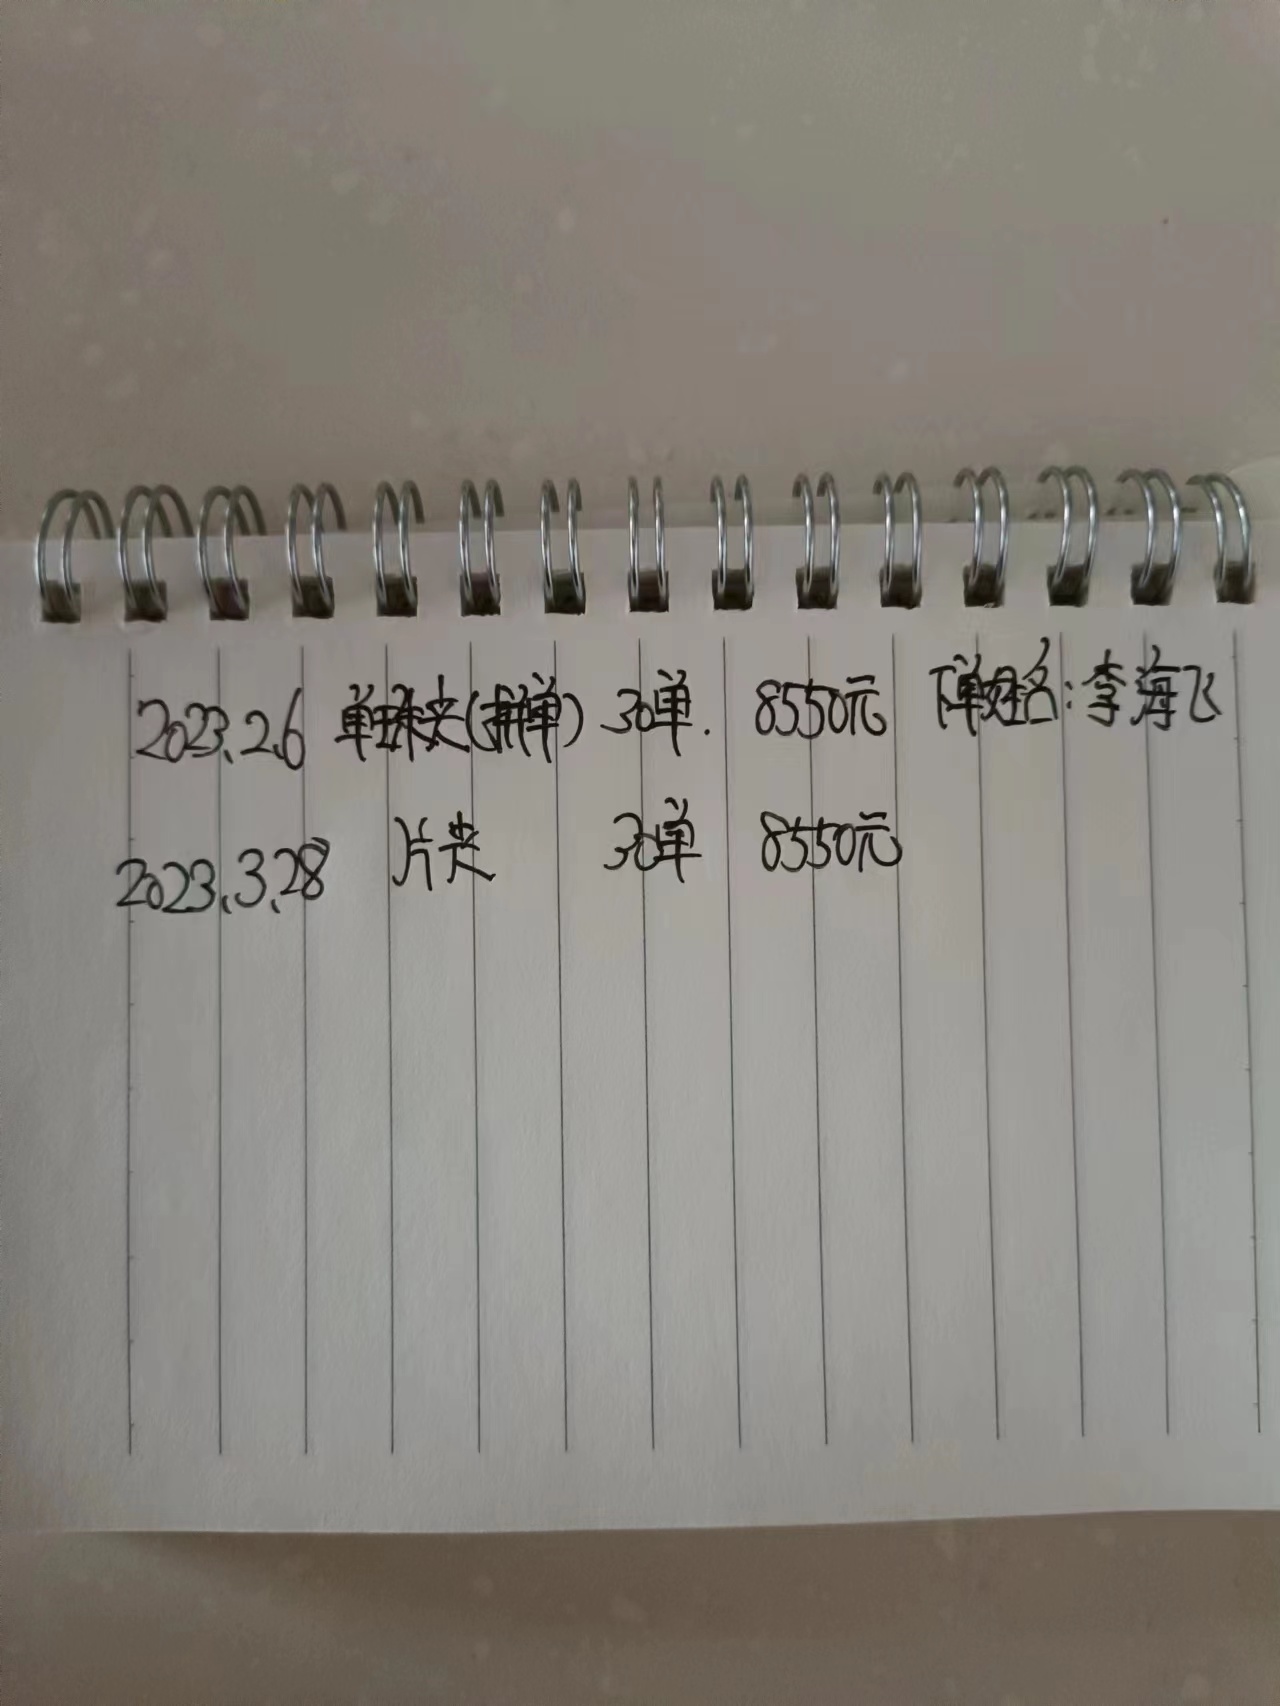 2023.2.6 单珠夹(拼单) 30单. 8550元 下单姓名:李海飞
2023.3.28 片夹 30单 8550元